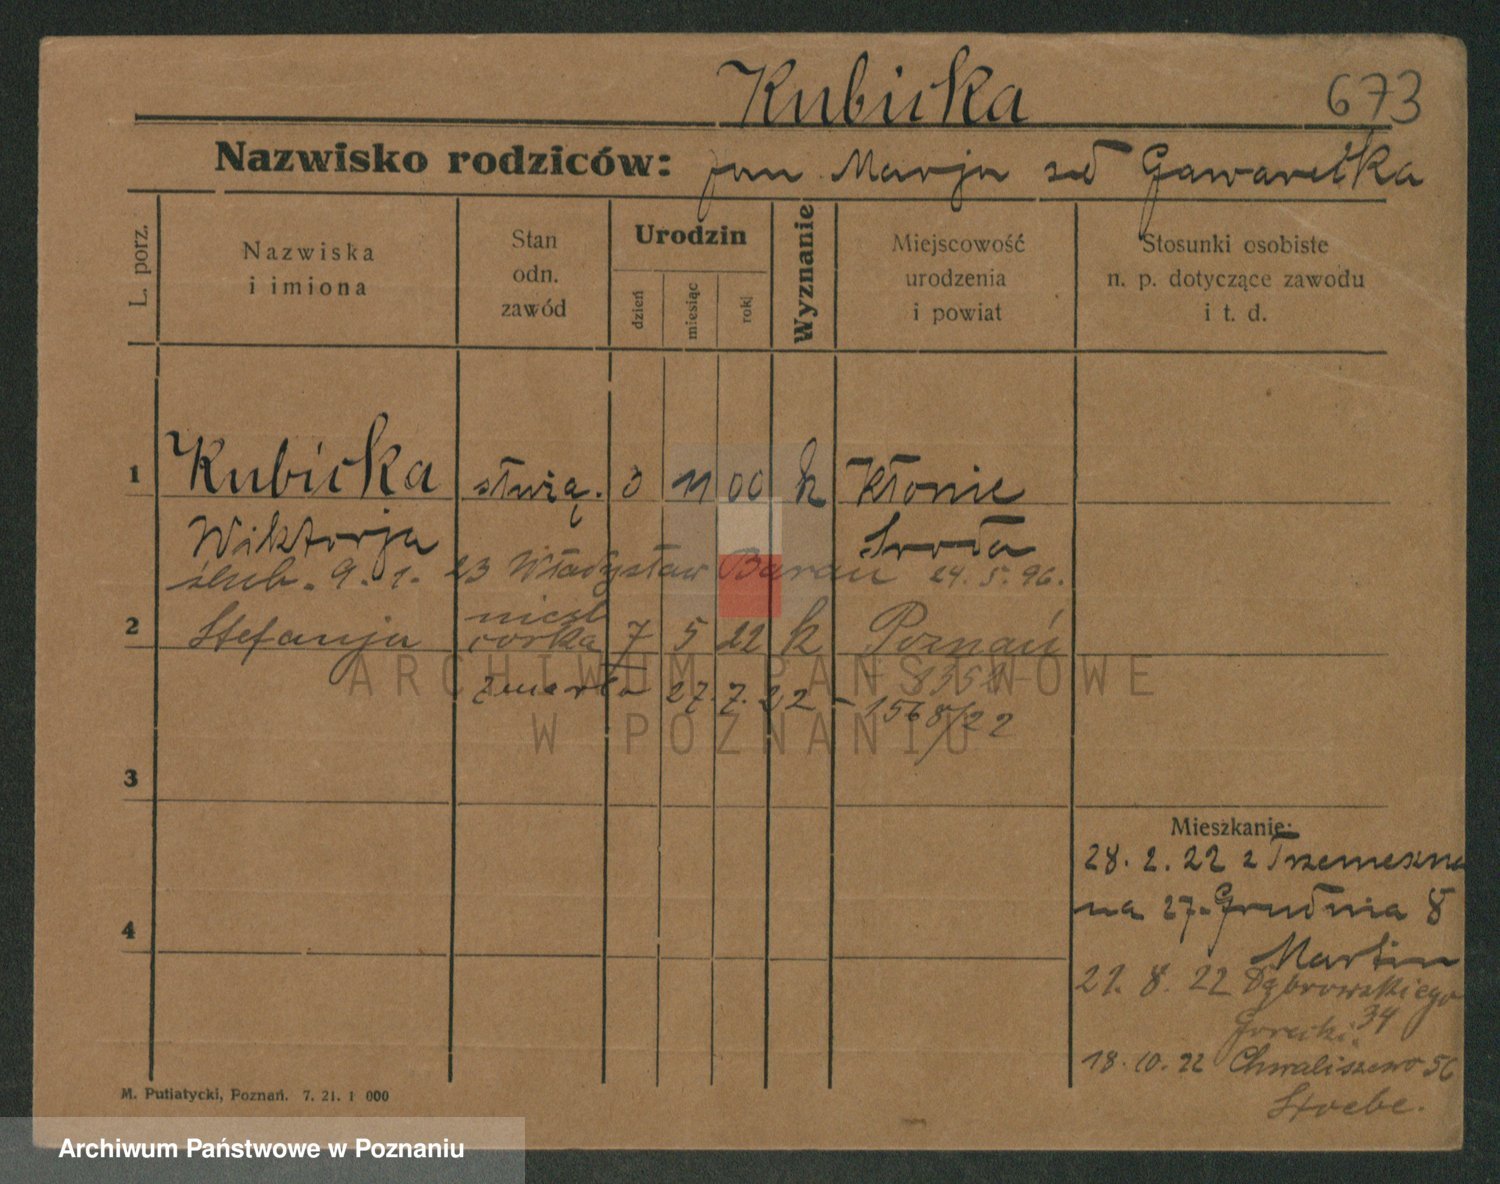 Kubicka 673
Nazwisko rodziców: Jan Marja zd Gawarecka
L. porz.
Nazwiska
i imiona
Stan
odn.
zawód
Urodzin
dzień
miesiąc
rok
Wyznanie
Miejscowość
urodzenia
i powiat
Stosunki osobiste
n. p. dotyczące zawodu
i t. d.
1 Kubicka służą. 3 11 00 k Kłonie
Wiktorja Środa
ślub. 9. 1. 23 Władysław Baran 24. 5. 96.
nieśl
2 Stefanja córka 7 5 22 k Poznań
1358
zmarła 27. 7. 22 - 1568/22
3
4
Mieszkanie:
28. 2. 22 z Trzemeszna
na 27. Grudnia 8
Martin
21. 8. 22 Dąbrowskiego
34
Gorecki
18. 10. 22 Chwaliszewo 56
Stoebe.
M. Putiatycki, Poznań. 7. 21. 1 000
ARCHIWUM PAŃSTWOWE
W POZNANIU
Archiwum Państwowe w Poznaniu